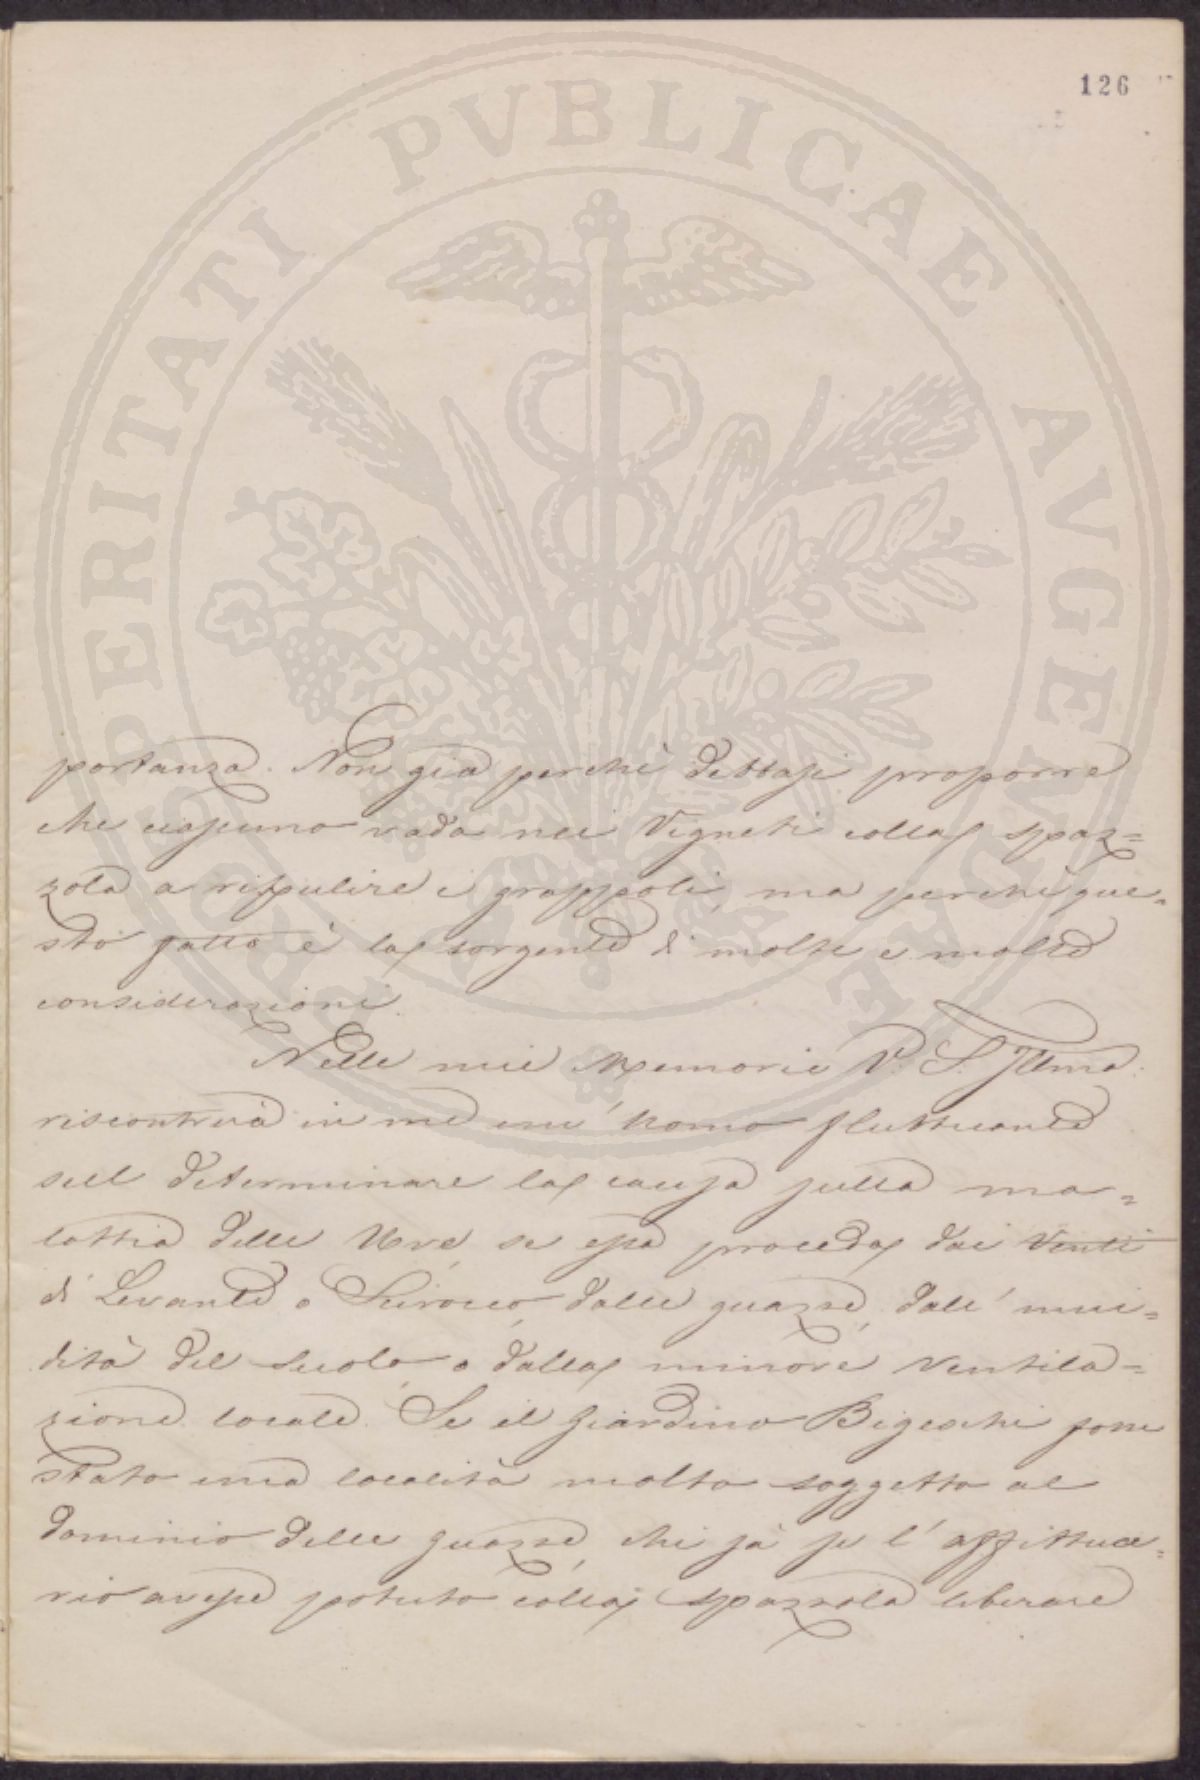 126
PROSPERITATI PVBLICAE AVGENDAE
portanza. Non già perchè debbasi proporre
che ciascuno vada nei Vigneti colla spaz=
zola a ripulire i grappoli, ma perchè que=
sto fatto è la sorgente di molte e molte
considerazioni.
Nelle mie Memorie V. S. Illma.
riscontrerà in me un' uomo fluttuante
sul determinare la causa sulla ma=
lattia delle Uve se essa proceda dai Venti
di Levante o Scirocco, dalle guazze, dall' umi=
dità del suolo, o dalla minore ventila=
zione locale. Se il Giardino Bigeschi fosse
stato una località molto soggetta al
dominio delle guazze, chi sà se l' affittua=
rio avesse potuto colla spazzola liberare